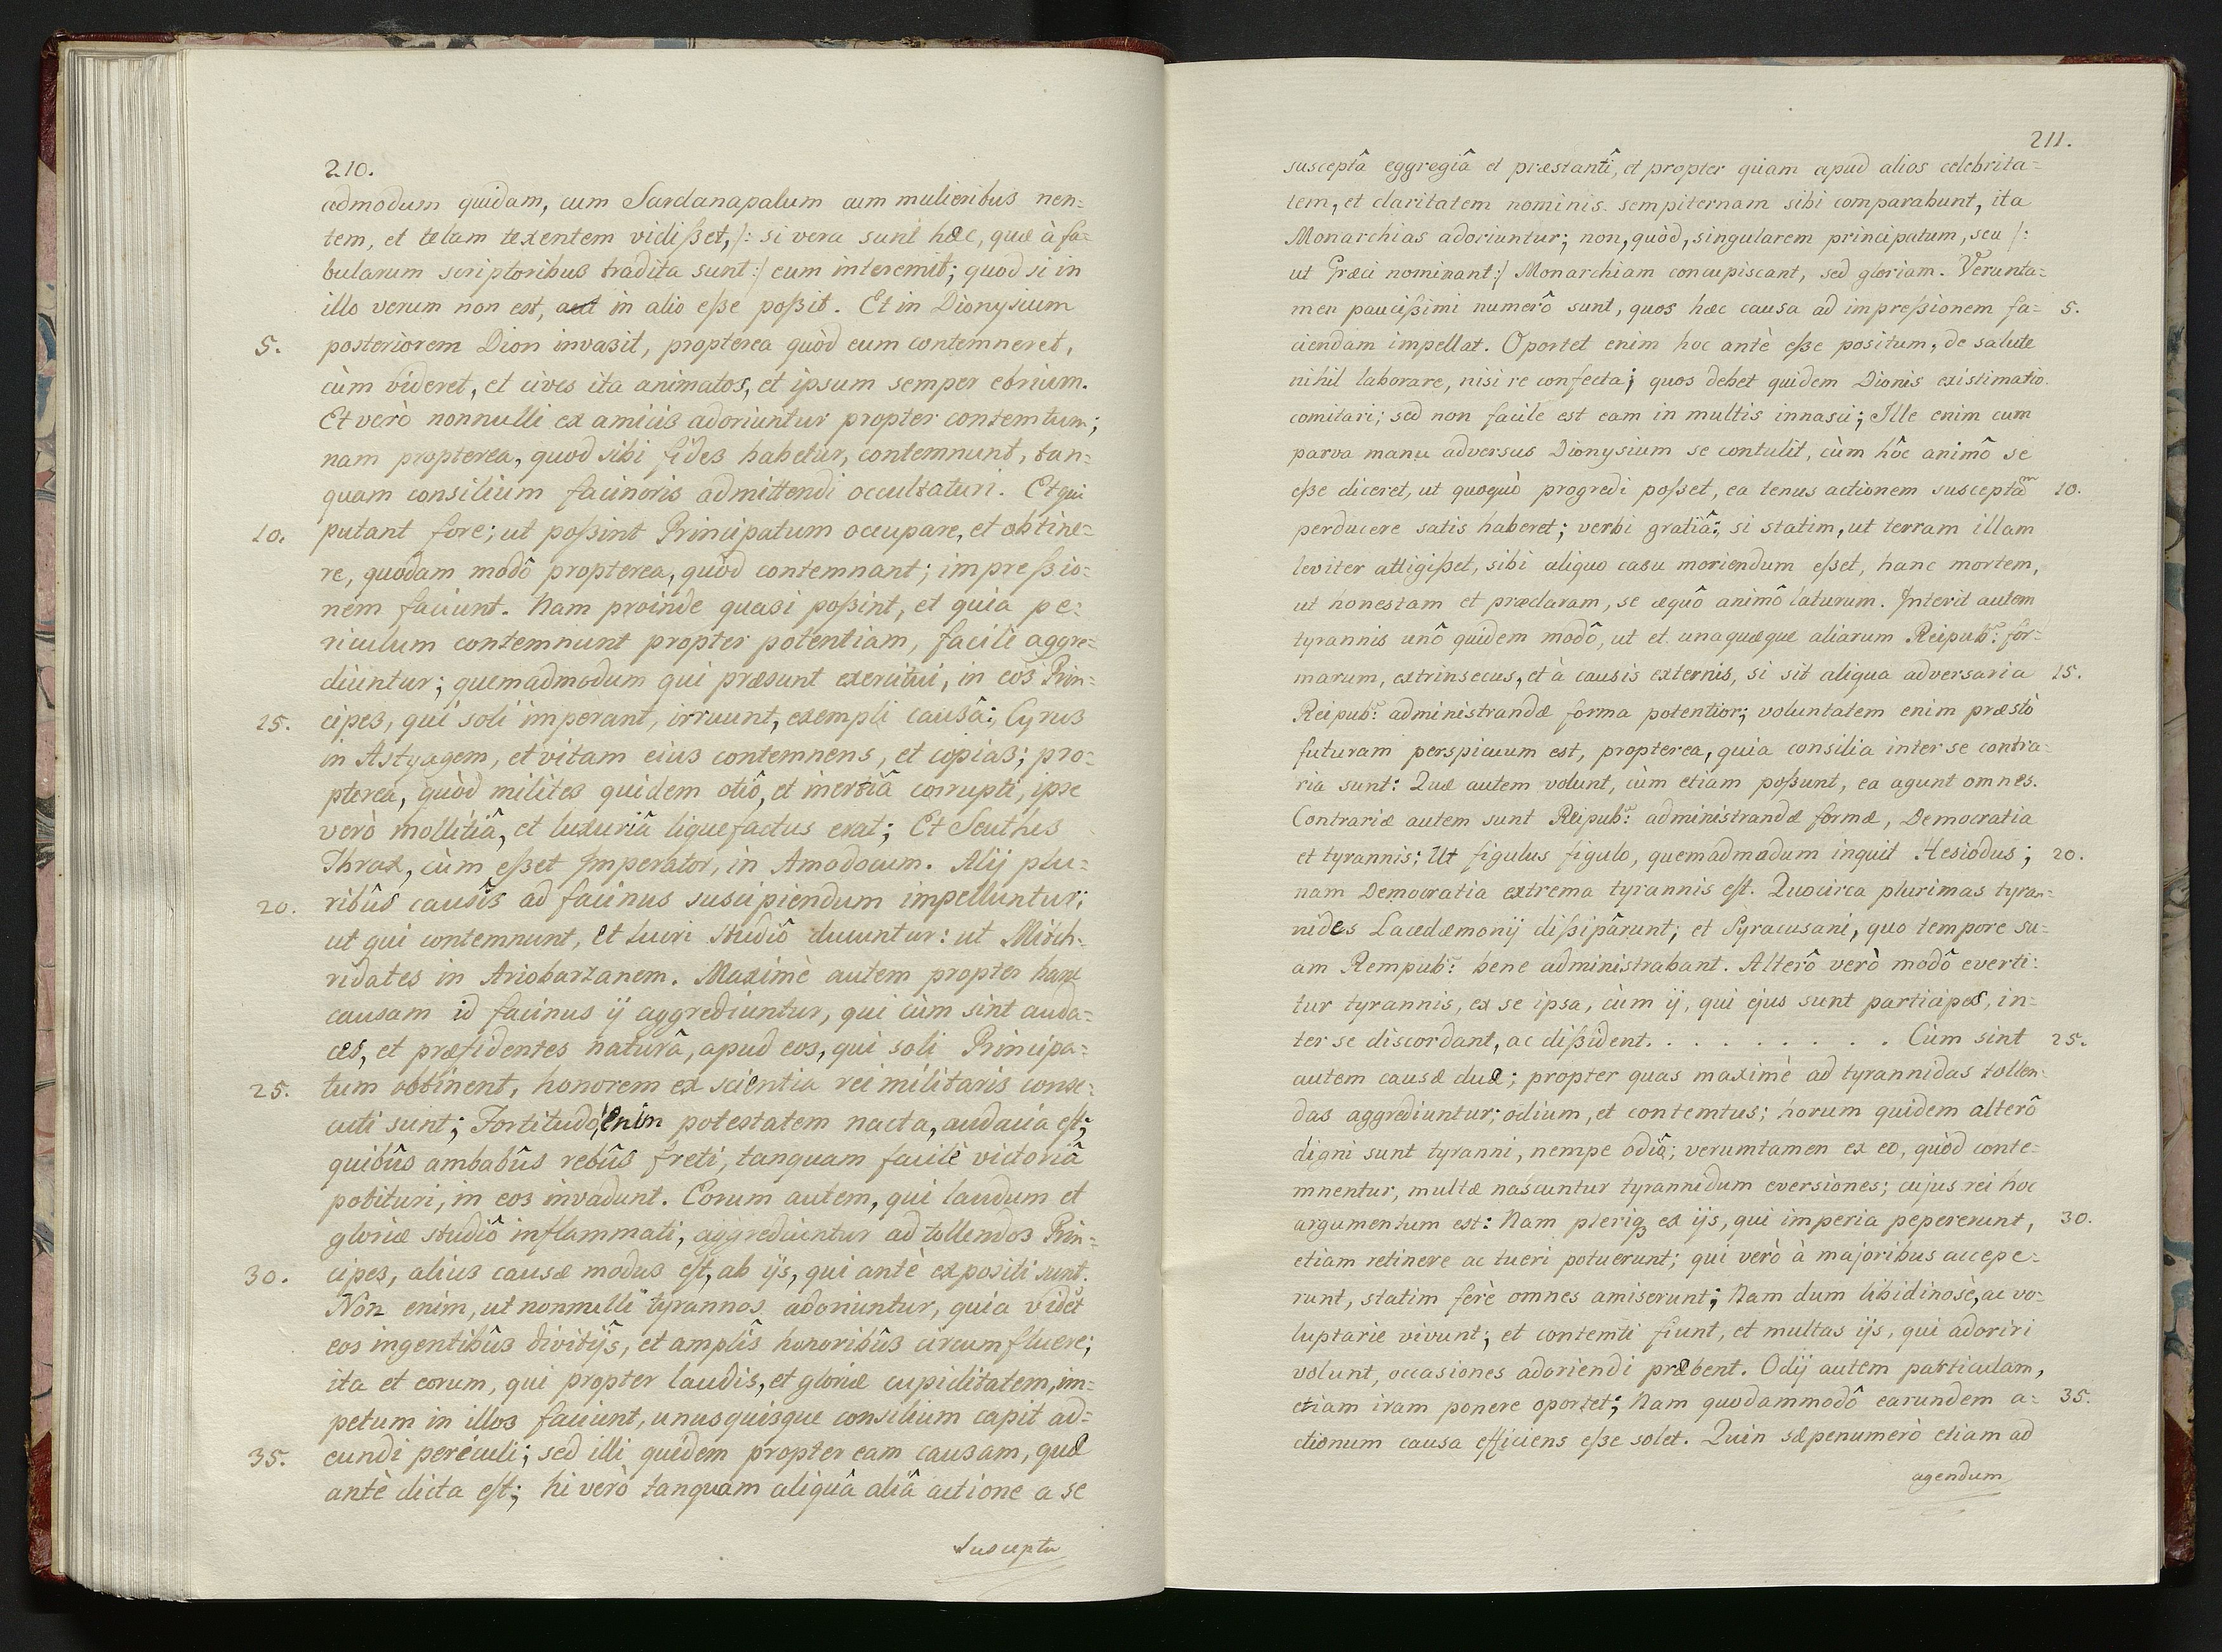 210.
admodum quidam, cum Sardanapalum cum mulieribus nen=
tem, et telam texentem vidißet, /: si vera sunt hæc, quæ à fa=
bularum scriptoribus tradita sunt :/ eum interemit; quod si in
illo verum non est, aut in alio eße poßit. Et in Dionysium
5. posteriorem Dion invasit, propterea quòd eum contemneret,
cùm videret, et cives ita animatos, et ipsum semper ebrium.
Et verò nonnulli ex amicis adoriuntur propter contemtum;
nam propterea, quod sibi fides habetur, contemnunt, tan=
quam consilium facinoris admittendi occultaturi. Et qui
10. putant fore; ut poßint Principatum occupare, et obtine=
re, quodam modô propterea, quòd contemnant; impreßio=
nem faciunt. Nam proinde quasi poßint, et quia pe=
riculum contemnunt propter potentiam, facilè aggre=
diuntur; quemadmodum qui præsunt exercitui, in eos Prin=
15. cipes, qui soli imperant, irruunt, exempli causâ: Cyrus
in Astyagem, et vitam eius contemnens, et copias; pro=
pterea, quòd milites quidem otiô, et inertiâ corrupti, ipse
verò mollitiâ, et luxuriâ liquefactus erat; Et Seuthes
Thrax, cùm eßet Imperator, in Amodocum. Alij plu=
20. ribûs causîs ad facinus suscipiendum impelluntur;
ut qui contemnunt, et lucri studiô ducuntur: ut Mith=
ridates in Ariobarzanem. Maximè autem propter hanc
causam id facinus ij aggrediuntur, qui cùm sint auda=
ces, et præfidentes naturâ, apud eos, qui soli Principa=
25. tum obtinent, honorem ex scientia rei militaris conse=
cuti sunt; Fortitudo enim potestatem nacta, audacia est;
quibûs ambabûs rebûs freti, tanquam facilè victoriâ
potituri, in eos invadunt. Eorum autem, qui laudum et
gloriæ studiô inflammati, aggrediuntur ad tollendos Prin=
30. cipes, alius causæ modus est, ab ijs, qui antè expositi sunt.
Non enim, ut nonnulli tyrannos adoriuntur, quia videt
eos ingentibûs divitijs, et amplîs honoribûs circumfluere;
ita et eorum, qui propter laudis, et gloriæ cupiditatem, im=
petum in illos faciunt, unusquisque consilium capit ad=
35. eundi periculi; sed illi quidem propter eam causam, quæ
antè dicta est; hi verò tanquam aliquâ aliâ actione a se
suscepta
211.
susceptâ eggregiâ et præstantî, et propter quam apud alios celebrita=
tem, et claritatem nominis sempiternam sibi comparabunt, ita
Monarchias adoriuntur; non, quòd, singularem principatum, seu /:
ut Græci nominant :/ Monarchiam concupiscant, sed gloriam. Verunta=
men paucißimi numerô sunt, quos hæc causa ad impreßionem fa= 5.
ciendam impellat. Oportet enim hoc antè eße positum, de salute
nihil laborare, nisi re confecta; quos debet quidem Dionis existimatio
comitari; sed non facile est eam in multis innasci; Ille enim cum
parva manu adversus Dionysium se contulit, cùm hôc animô se
eße diceret, ut quoquò progredi poßet, ea tenus actionem susceptam 10.
perducere satis haberet; verbi gratiâ: si statim, ut terram illam
leviter attigißet, sibi aliquo casu moriendum eßet, hanc mortem,
ut honestam et præclaram, se æquô animô laturum. Interit autem
tyrannis unô quidem modô, ut et unaquæque aliarum Reipub: for=
marum, extrinsecus, et à causis externis, si sit aliqua adversaria 15.
Reipub: administrandæ forma potentior; voluntatem enim præstò
futuram perspicuum est, propterea, quia consilia inter se contra=
ria sunt: Quæ autem volunt, cùm etiam poßunt, ea agunt omnes.
Contrariæ autem sunt Reipub: administrandæ formæ, Democratia
et tyrannis; Ut figulus figulo, quemadmodum inquit Hesiodus; 20.
nam Democratia extrema tyrannis est. Quocirca plurimas tyran=
nides Lacedæmonij dißipârunt; et Syracusani, quo tempore su=
am Rempub: bene administrabant. Alterô verò modô everti=
tur tyrannis, ex se ipsa, cùm ij, qui ejus sunt participes, in=
ter se discordant, ac dißident. . . . . . . . . . Cùm sint 25.
autem causæ duæ; propter quas maximè ad tyrannidas tollen=
das aggrediuntur; odium, et contemtus; horum quidem alterô
digni sunt tyranni, nempe odiô; verumtamen ex eo, quòd conte=
mnentur, multæ nascuntur tyrannidum eversiones; cujus rei hoc
argumentum est: Nam pleriq; ex ijs, qui imperia pepererunt, 30.
etiam retinere ac tueri potuerunt; qui verò à majoribus accepe=
runt, statim ferè omnes amiserunt; Nam dum libidinosè, ac vo=
luptariè vivunt; et contemti fiunt, et multas ijs, qui adoriri
volunt, occasiones adoriendi præbent. Odij autem particulam,
etiam iram ponere oportet; Nam quodammodô earundem a= 35.
ctionum causa efficiens eße solet. Quin sæpenumerò etiam ad
agendum